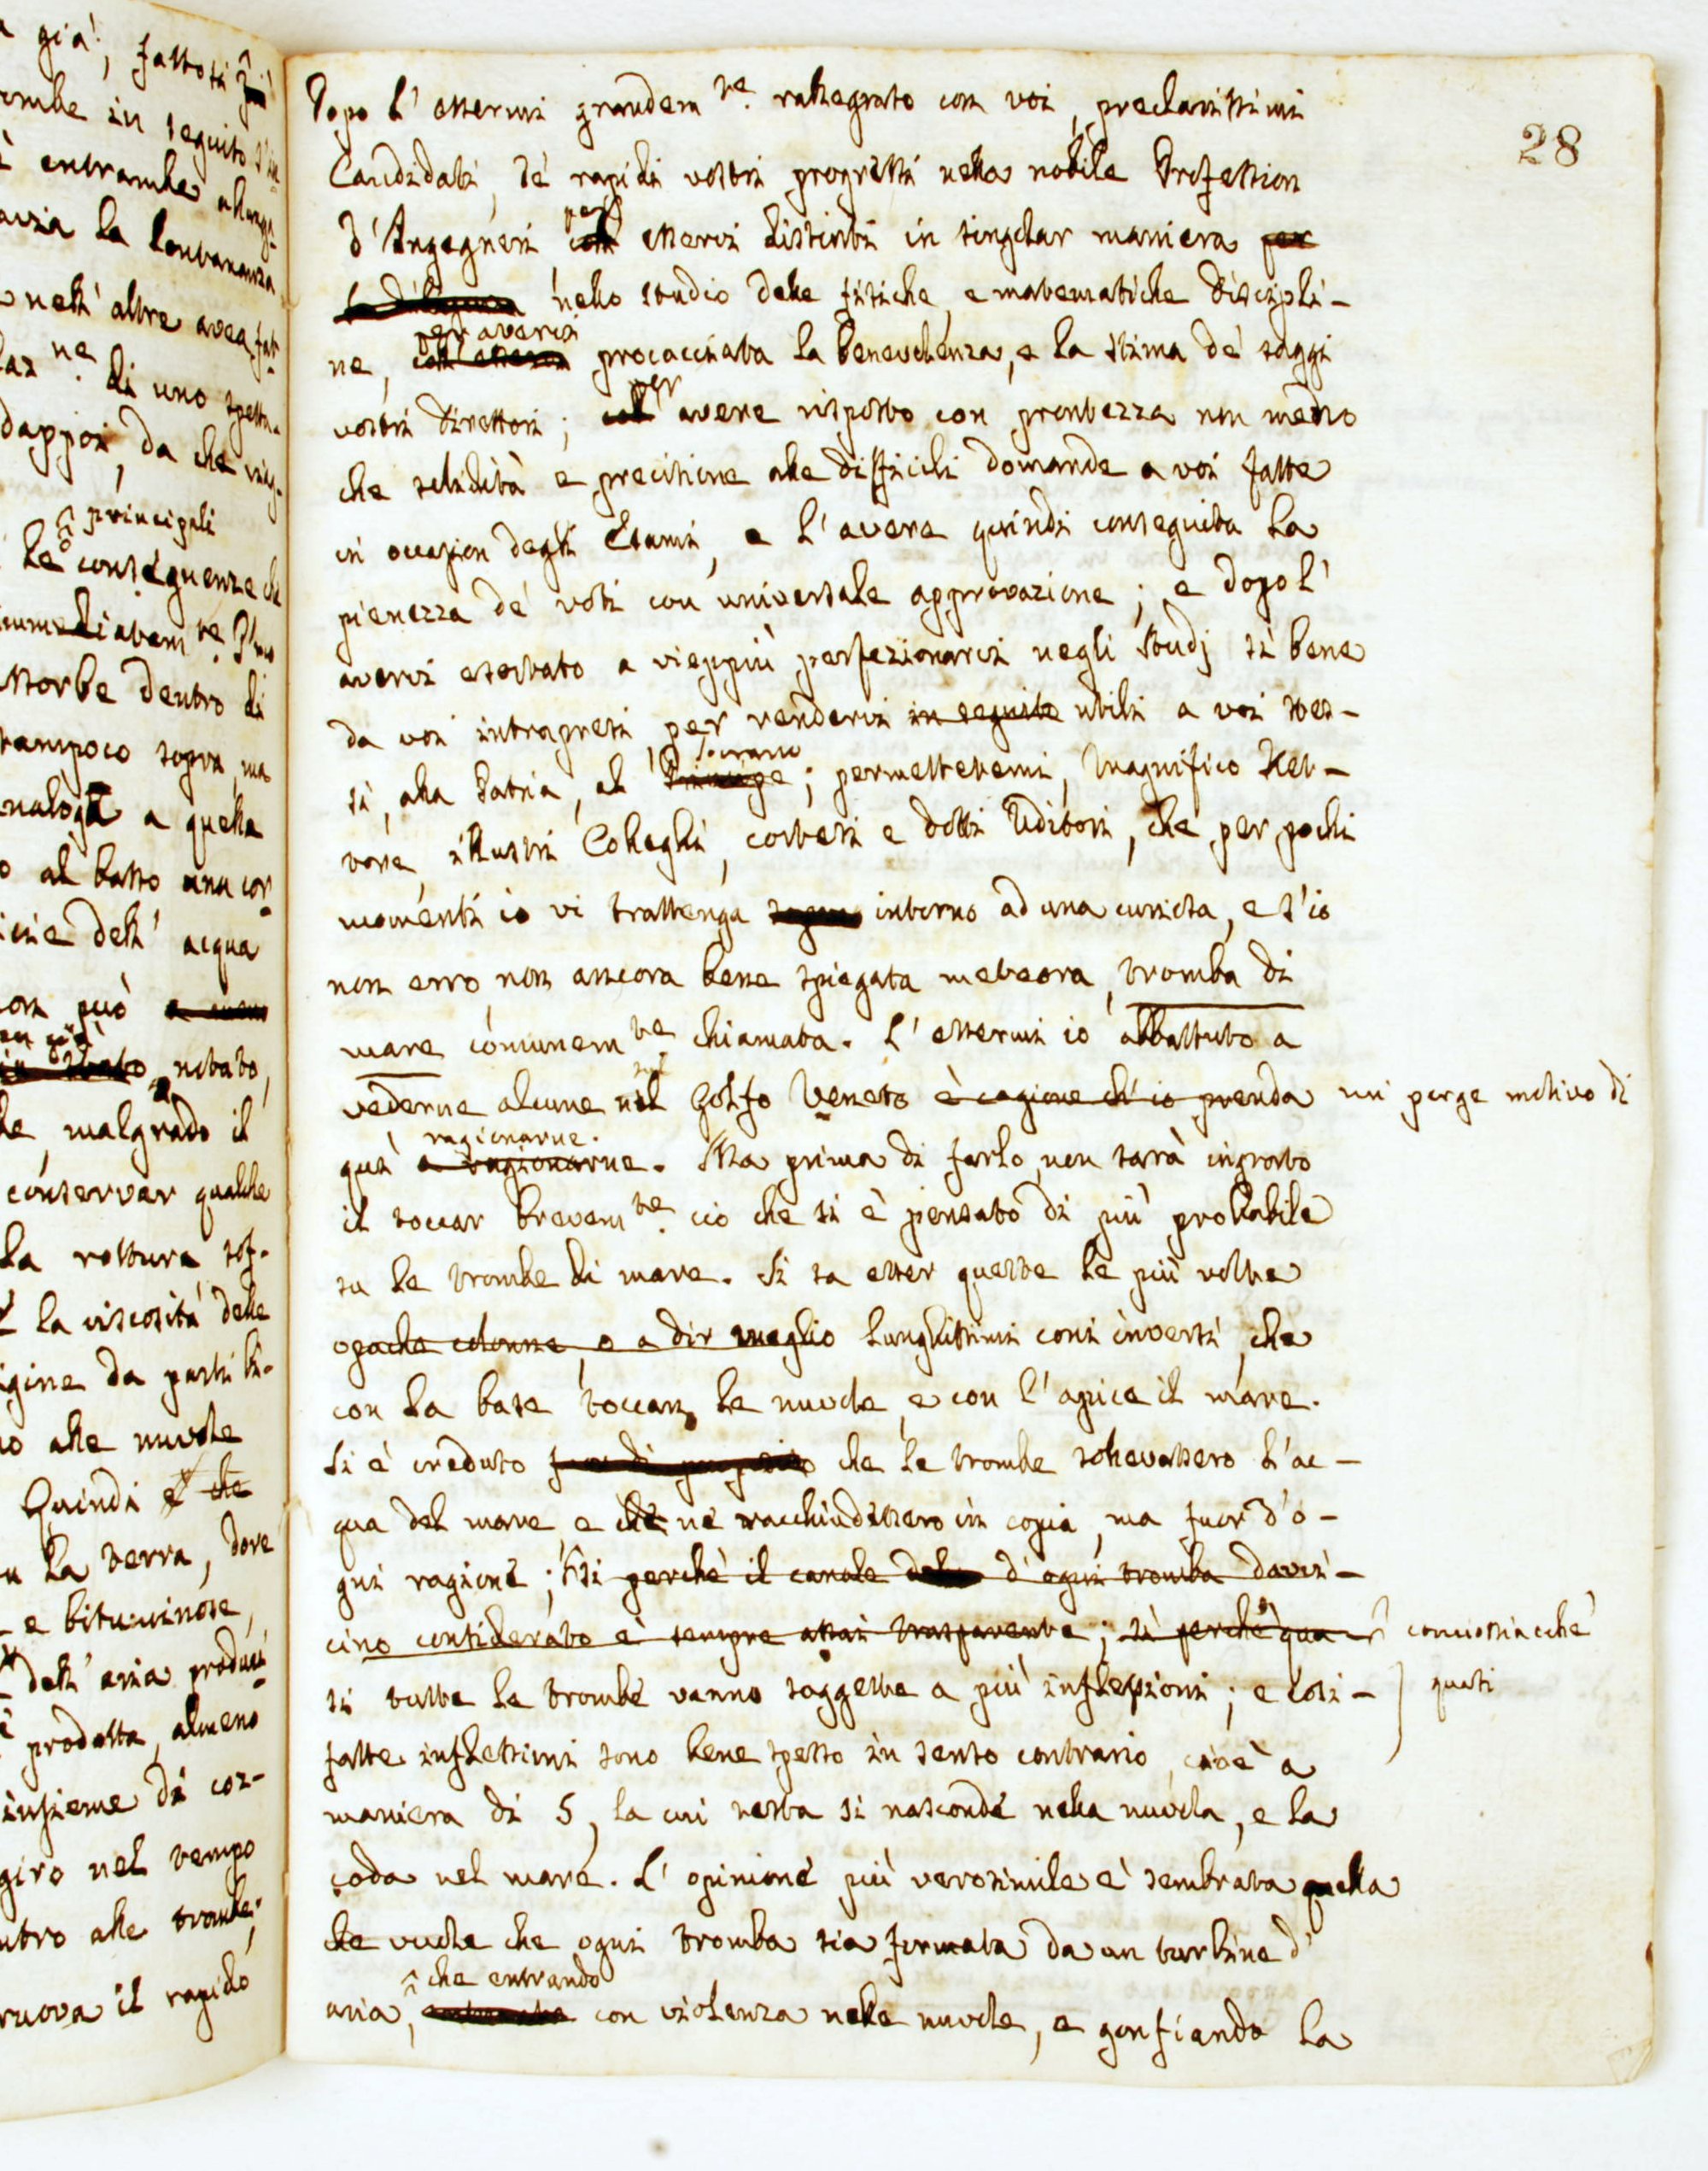 già, fattosi più
ombe in seguito s'in
entrambe allunga-
avia la lontananza
nell'altre avea fat
az.ne di uno spetta-
dappoi, da che
principali
le conseguenze che
immediatam.te
assorbe dentro di
tampoco sopra, ma
analoga a quella
al basso una cor
icie dell'acqua
non può
notato,
he, malgrado il
conservar qualche
la rottura sof-
la viscosità delle
igine da parti bi-
no alle nuvole
Quindi è che
la terra, dove
e bituminose,
dell'aria produci
prodotta, almeno
insieme di coz-
giro nel tempo
ntro alle trombe;
ruova il rapido
28
Dopo l'essermi grandem.te rallegrato con voi, preclarissimi
Candidati, de' rapidi vostri progressi nella nobile Profession
d'Ingegneri per esservi distinti in singolar maniera per
nello studio delle fisiche, e matematiche discipli-
per avervi
ne, procacciata la benevolenza, e la stima de' saggi
per
vostri direttori; col avere risposto con prontezza non meno
che solidità e precisione alle difficili domande a voi fatte
in occasion degli Esami, e l'avere quindi conseguita la
pienezza de' voti con universale approvazione; e dopo l'
avervi esortato a vieppiù perfezionarvi negli Studj sì bene
da voi intrapresi per rendervi in seguito utili a voi stes-
Sovrano
si, alla Patria, al Principe; permettetemi, Magnifico Ret-
tore, illustri Colleghi, cortesi e dotti Uditori, che per pochi
momenti io vi trattenga sopra intorno ad una curiosa, e s'io
non erro non ancora bene spiegata meteora, tromba di
mare comunem.te chiamata. L'essermi io abbattuto a
vederne alcune nel Golfo Veneto è cagione ch'io prenda mi porge motivo di
ragionarne.
quì a ragionarne. Ma prima di farlo non sarà ingrato
il toccar brevem.te ciò che si è pensato di più probabile
su le trombe di mare. Si sa esser queste le più volte
opache colonne, o a dir meglio lunghissimi coni inversi, che
con la base toccan le nuvole, e con l'apice il mare.
Si è creduto fuor di proposito che le trombe sollevassero l'ac-
qua del mare, e che ne racchiudessero in copia, ma fuor d'o-
gni ragione; sì perchè il canale d'ogni tromba davvi-
cino considerato è sempre assai trasparente; sì perchè qua- conciossiacchè
si tutte le trombe vanno soggette a più inflessioni; e così- quasi
fatte inflessioni sono bene spesso in senso contrario, cioè a
maniera di S, la cui testa si nasconde nella nuvola, e la
coda nel mare. L'opinione più verosimile è sembrata quella
che vuole che ogni tromba sia formata da un turbine d'
che entrando
aria, con violenza nelle nuvole, e gonfiando la